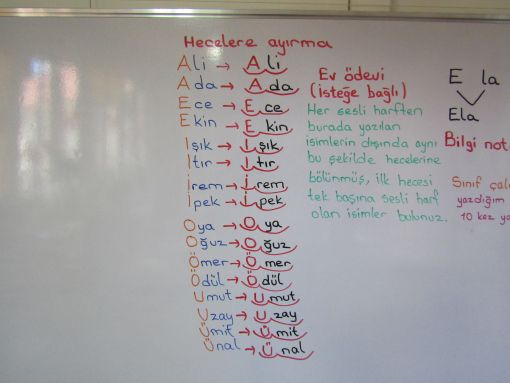 Hecelere ayırma
Ali → A li
Ada → A da
Ece → E ce
Ekin → E kin
Işık → I şık
Itır → I tır
İrem → İ rem
İpek → İ pek
Oya → O ya
Oğuz → O ğuz
Ömer → Ö mer
Ödül → Ö dül
Umut → U mut
Uzay → U zay
Ümit → Ü mit
Ünal → Ü nal
Ev ödevi
(isteğe bağlı)
Her sesli harften
burada yazılan
isimlerin dışında aynı
bu şekilde hecelerine
bölünmüş, ilk hecesi
tek başına sesli harf
olan isimler bulunuz.
E la
Ela
Bilgi not
Sınıf çalı
yazdığım
10 kez ya